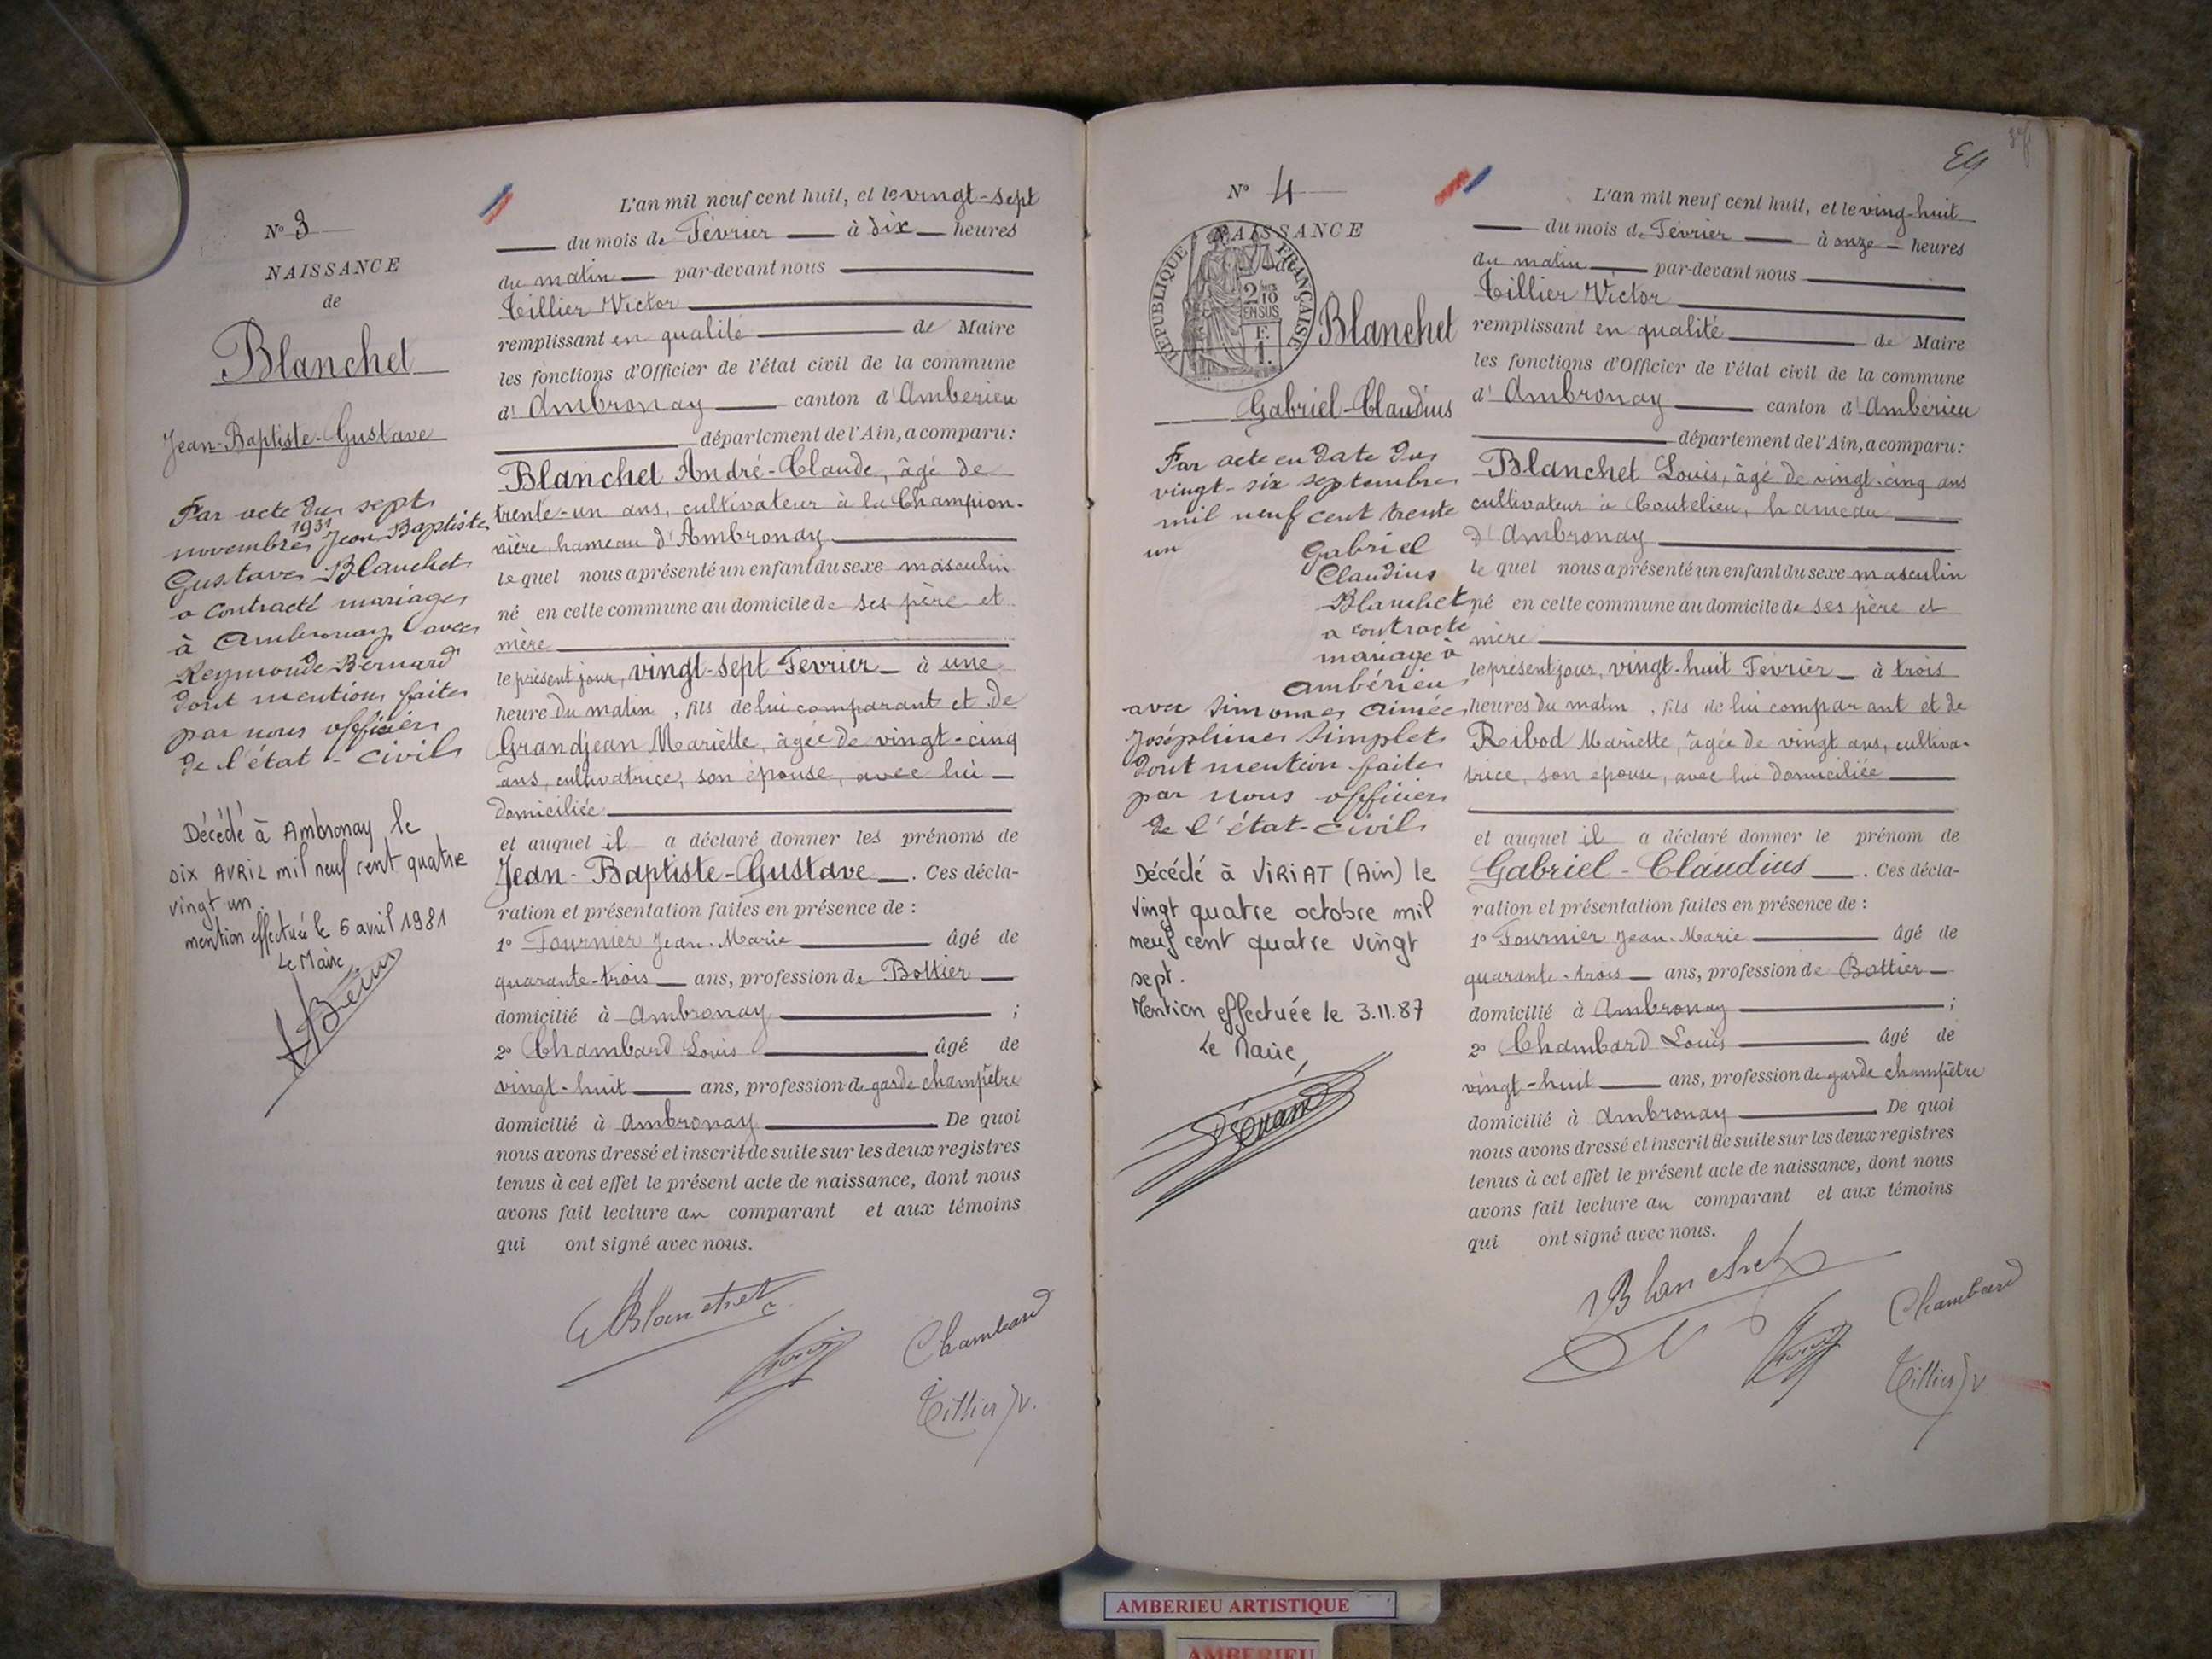 N° 3
NAISSANCE
de
Blanchet
Jean-Baptiste-Gustave
Par acte du sept
novembre 1931 Jean Baptiste
Gustave Blanchet
a contracté mariage
à Ambronay avec
Reymonde Bernard
dont mention faite
par nous officier
de l'état-civil
Décédé à Ambronay le
six AVRIL mil neuf cent quatre
vingt un.
mention effectuée le 6 avril 1981
Le Maire
L'an mil neuf cent huit, et le vingt-sept
du mois de Février à dix heures
du matin par-devant nous
Tillier Victor
remplissant en qualité de Maire
les fonctions d'Officier de l'état civil de la commune
d'Ambronay canton d'Ambérieu
département de l'Ain, a comparu:
Blanchet André-Claude, âgé de
trente-un ans, cultivateur à la Champion-
nière, hameau d'Ambronay
lequel nous a présenté un enfant du sexe masculin
né en cette commune au domicile de ses père et
mère
le présent jour, vingt-sept Février à une
heure du matin, fils de lui comparant et de
Grandjean Mariette, âgée de vingt-cinq
ans, cultivatrice, son épouse, avec lui
domiciliée
et auquel il a déclaré donner les prénoms de
Jean-Baptiste-Gustave. Ces décla-
ration et présentation faites en présence de :
1° Fournier Jean-Marie âgé de
quarante-trois ans, profession de Bottier
domicilié à Ambronay ;
2° Chambard Louis âgé de
vingt-huit ans, profession de garde champêtre
domicilié à Ambronay De quoi
nous avons dressé et inscrit de suite sur les deux registres
tenus à cet effet le présent acte de naissance, dont nous
avons fait lecture au comparant et aux témoins
qui ont signé avec nous.
Blanchet
Chambard
Tillier V.
N° 4
NAISSANCE
RÉPUBLIQUE FRANÇAISE
2/10
EN SUS
F.
1.
Blanchet
Gabriel-Claudius
Par acte en date du
vingt-six septembre
mil neuf cent trente
un
Gabriel
Claudius
Blanchet
a contracté
mariage à
Ambérieu
avec Simone Aimée
Joséphine Simplet
dont mention faite
par nous officier
de l'état-civil
Décédé à VIRIAT (Ain) le
vingt quatre octobre mil
neuf cent quatre vingt
sept.
Mention effectuée le 3.11.87
Le Maire,
L'an mil neuf cent huit, et le ving-huit
du mois de Février à onze heures
du matin par-devant nous
Tillier Victor
remplissant en qualité de Maire
les fonctions d'Officier de l'état civil de la commune
d'Ambronay canton d'Ambérieu
département de l'Ain, a comparu:
Blanchet Louis, âgé de vingt-cinq ans
cultivateur à Coutelieu, hameau
d'Ambronay
lequel nous a présenté un enfant du sexe masculin
né en cette commune au domicile de ses père et
mère
le présent jour, vingt-huit Février à trois
heures du matin, fils de lui comparant et de
Ribod Mariette, âgée de vingt ans, cultiva-
trice, son épouse, avec lui domiciliée
et auquel il a déclaré donner le prénom de
Gabriel-Claudius. Ces décla-
ration et présentation faites en présence de :
1° Fournier Jean-Marie âgé de
quarante-trois ans, profession de Bottier
domicilié à Ambronay ;
2° Chambard Louis âgé de
vingt-huit ans, profession de garde champêtre
domicilié à Ambronay De quoi
nous avons dressé et inscrit de suite sur les deux registres
tenus à cet effet le présent acte de naissance, dont nous
avons fait lecture au comparant et aux témoins
qui ont signé avec nous.
Blanchet
Chambard
Tillier V
AMBERIEU ARTISTIQUE
AMBERIEU